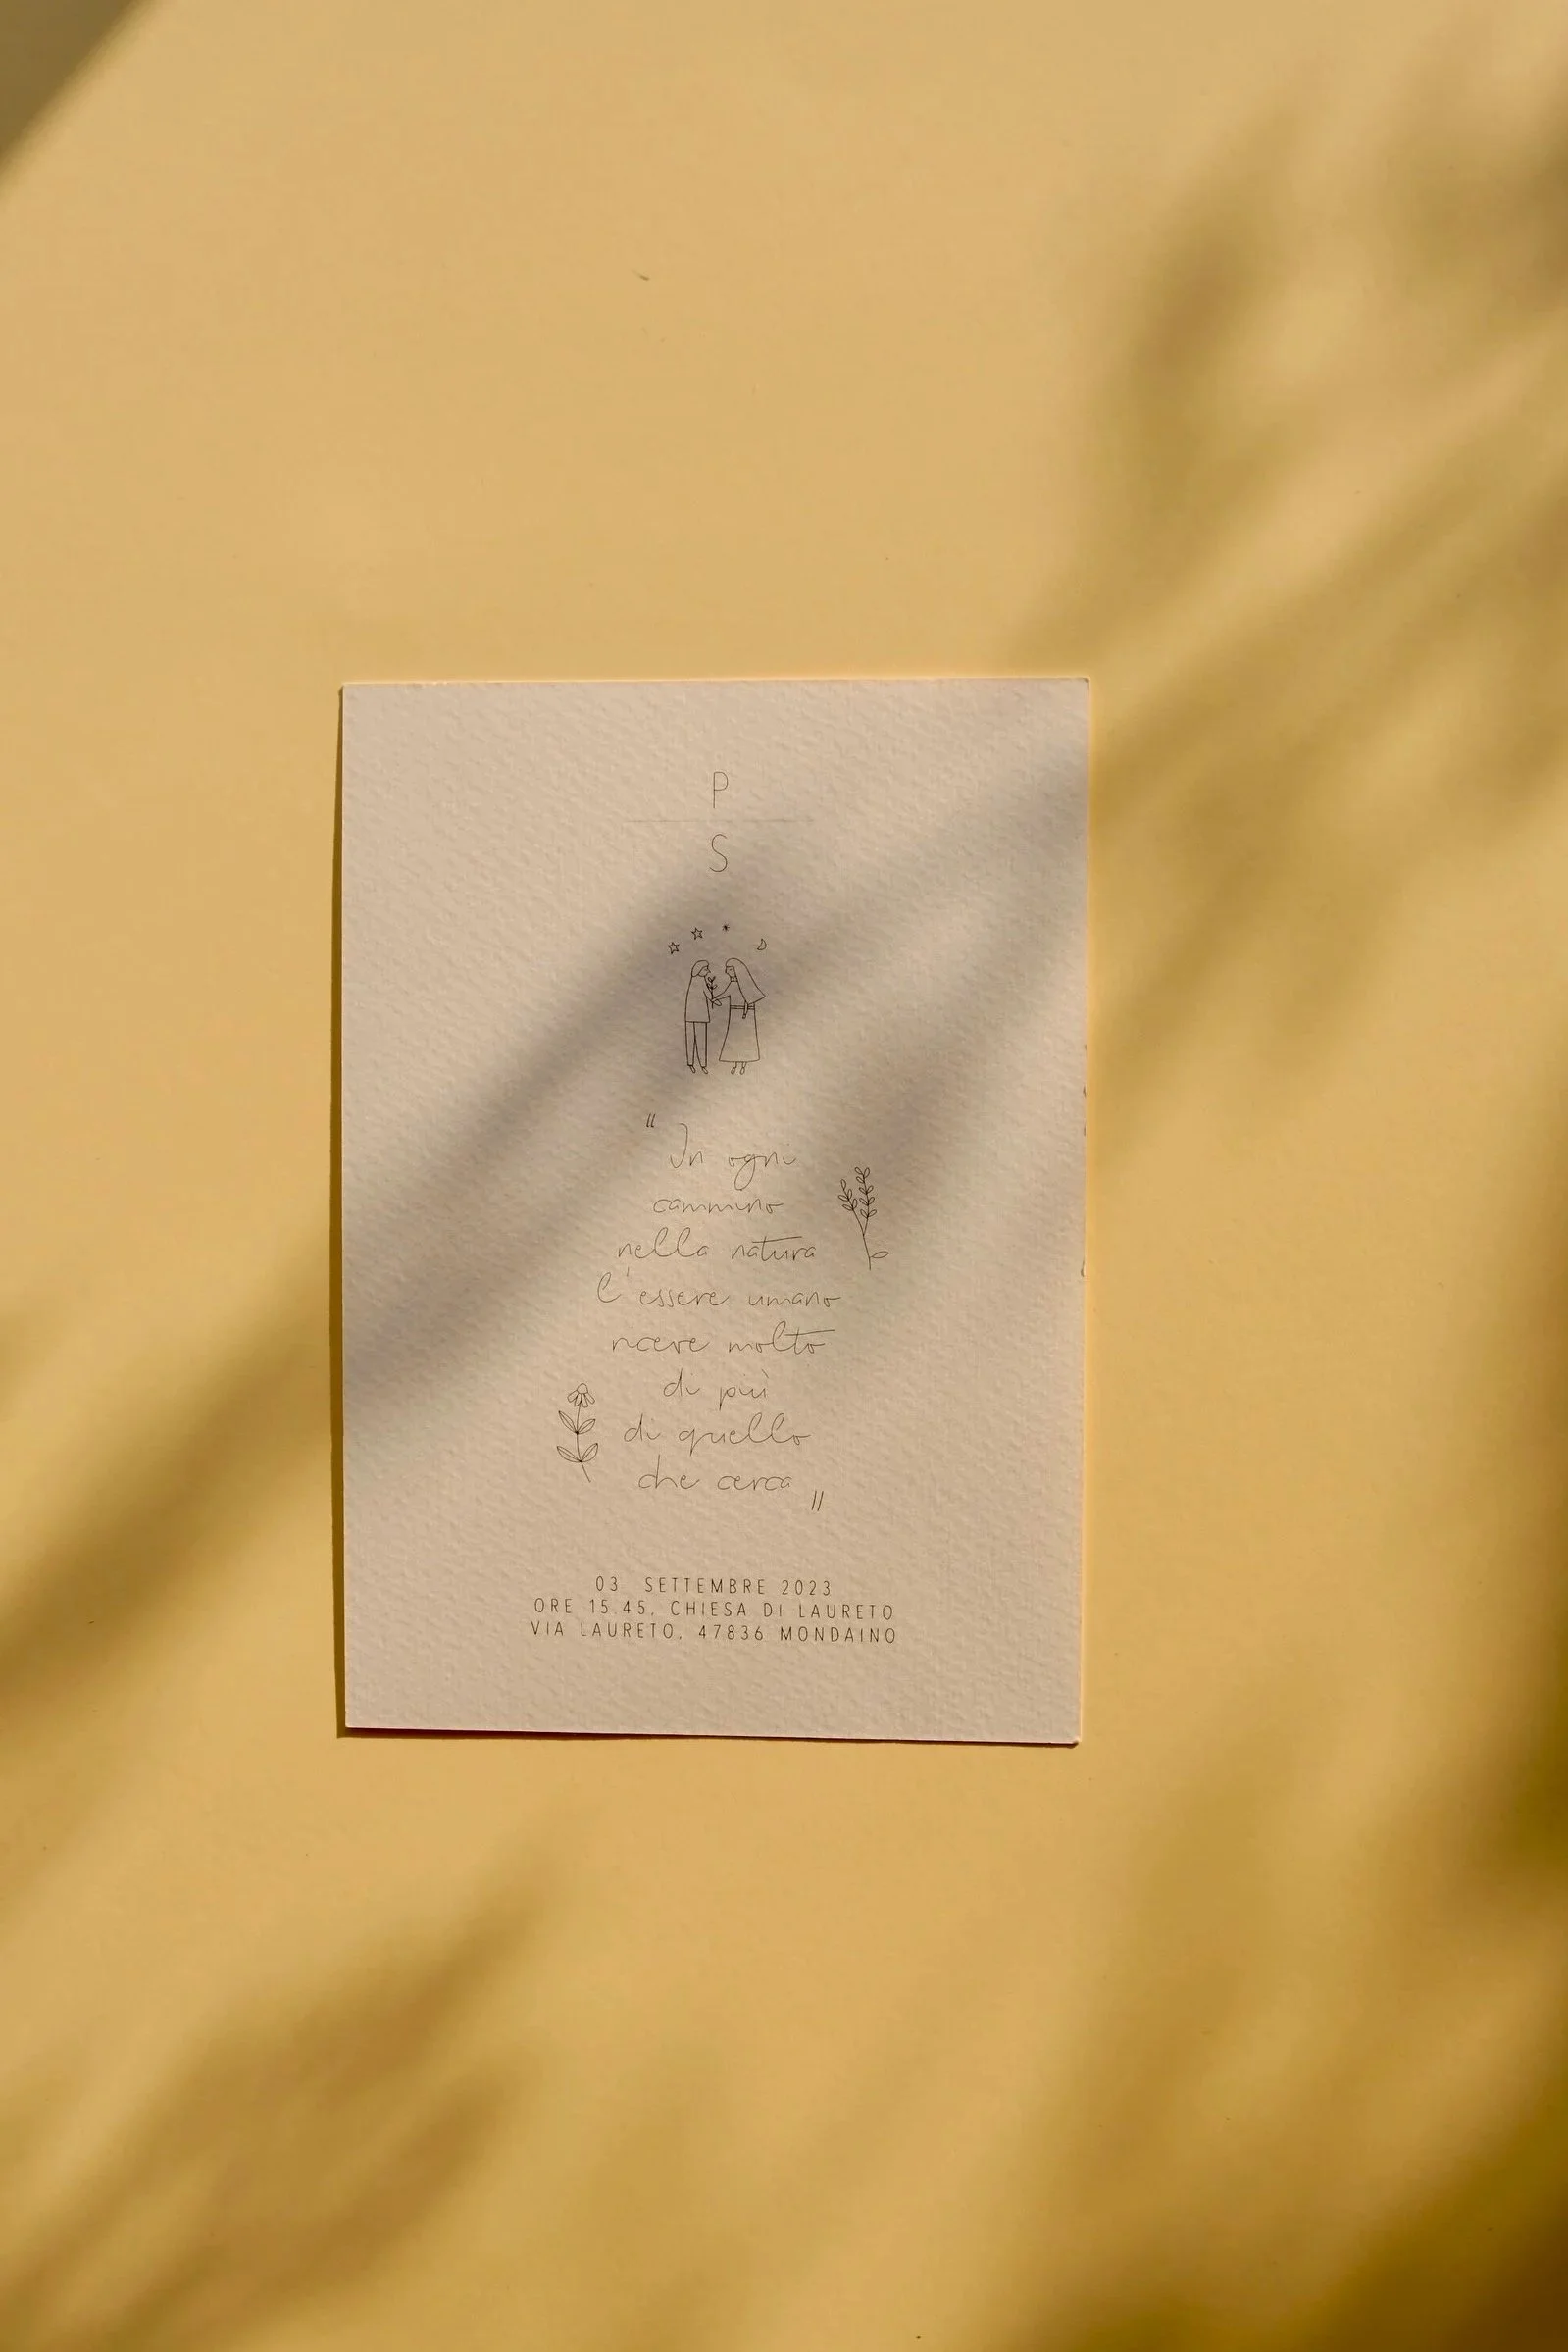 P
S
"In ogni
cammino
nella natura
l'essere umano
riceve molto
di più
di quello
che cerca"
03 SETTEMBRE 2023
ORE 15.45, CHIESA DI LAURETO
VIA LAURETO, 47836 MONDAINO